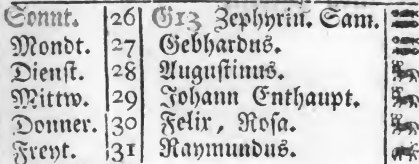 Sonnt. 26 G13 Zephyrin. Sam.
Mondt. 27 Gebhardus.
Dienst. 28 Augustinus.
Mittw. 29 Johann Enthaupt.
Donner. 30 Felix, Rosa.
Freyt. 31 Raymundus.